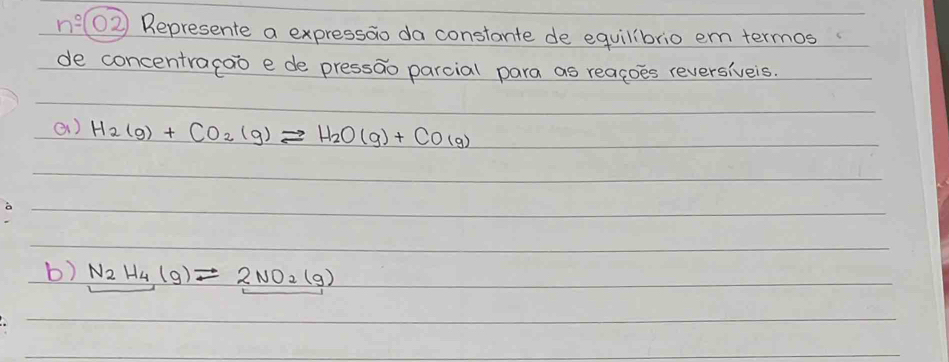 nº 02 Represente a expressão da constante de equilíbrio em termos
de concentração e de pressão parcial para as reações reversíveis.
a) H2(g) + CO2(g) ⇌ H2O(g) + CO(g)
b) N2H4(g) ⇌ 2NO2(g)